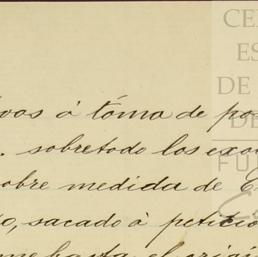 vos á toma de po
. sobretodo los exo
sobre medida de C
o, sacado á petició
me hasta el origi
CE
ES
DE
DE
FU